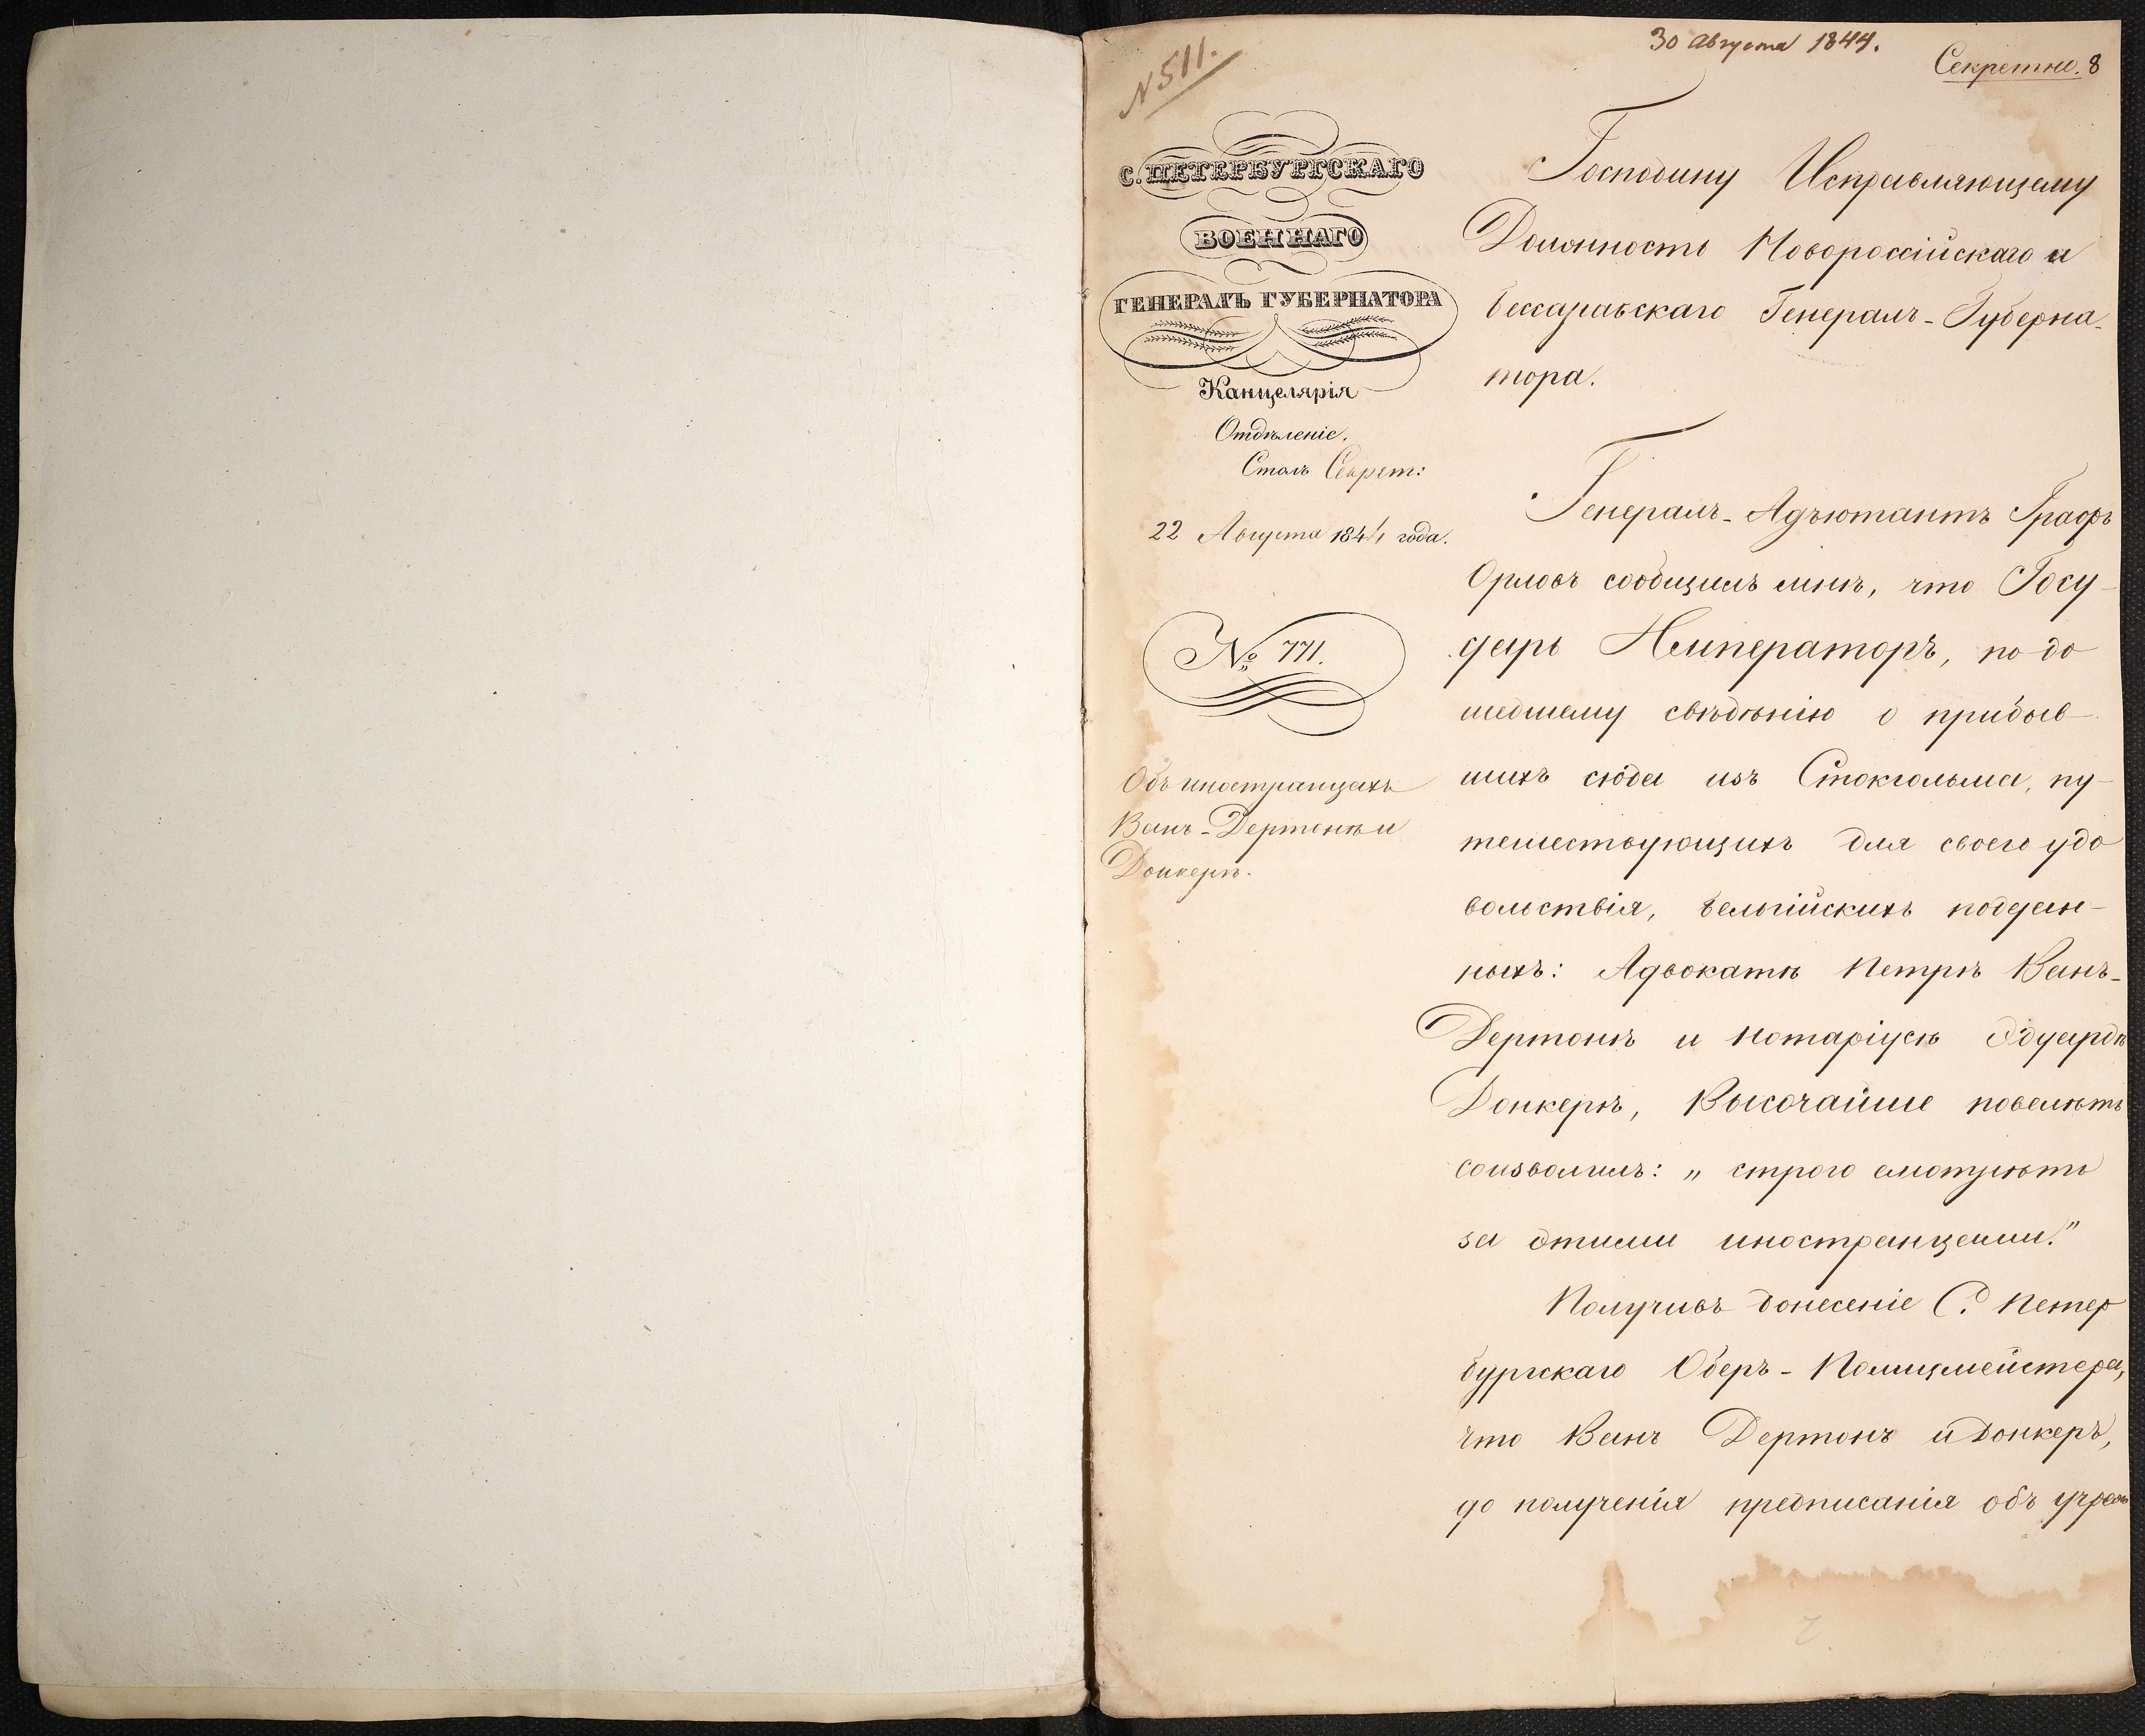 30 Августа 1844.
Секретно. 8
N 511.
С. ПЕТЕРБУРГСКАГО
ВОЕННАГО
ГЕНЕРАЛЪ ГУБЕРНАТОРА
Канцелярія
Отдѣленіе.
Столъ Секрет:
22 Августа 1844 года.
№ 771.
Объ иностранцахъ
Ванъ-Дертонѣ и
Донкерѣ.
Господину Исправляющему
Должность Новороссійскаго и
Бессарабскаго Генералъ-Губерна-
тора.
Генералъ-Адъютантъ Графъ
Орловъ сообщилъ мнѣ, что Госу-
дарь Императоръ, по до
шедшему свѣдѣнію о прибыв-
шихъ сюда изъ Стокгольма, пу-
тешествующихъ для своего удо
вольствія, Бельгійскихъ поддан-
ныхъ: Адвокатѣ Петрѣ Ванъ-
Дертонѣ и Нотаріусѣ Эдуардѣ
Донкерѣ, Высочайше повелѣть
соизволилъ: „строго смотрѣть
за этими иностранцами."
Получивъ донесеніе С. Петер
бургскаго Оберъ-Полицмейстера,
что Ванъ Дертонъ и Донкеръ,
до полученія предписанія объ учреж